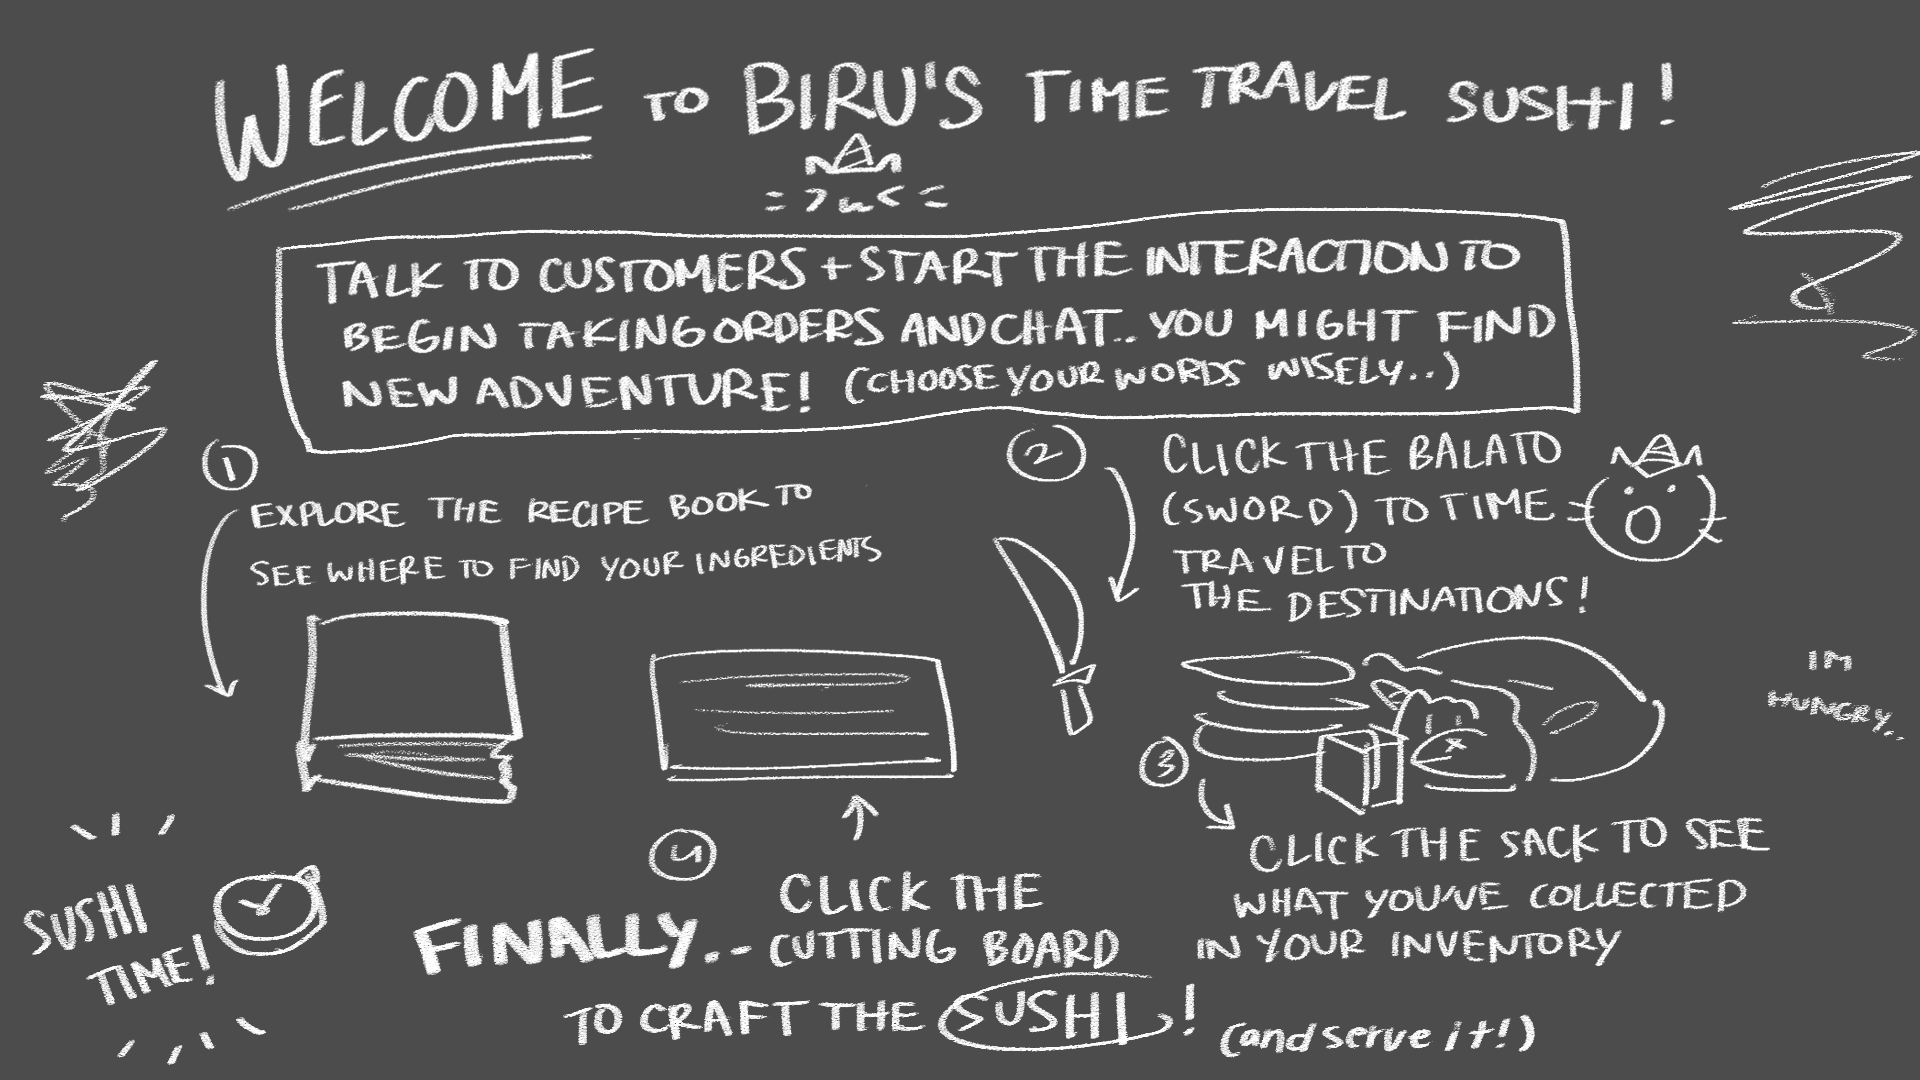 WELCOME TO BIRU'S TIME TRAVEL SUSHI!
TALK TO CUSTOMERS + START THE INTERACTION TO
BEGIN TAKING ORDERS AND CHAT.. YOU MIGHT FIND
NEW ADVENTURE! (CHOOSE YOUR WORDS WISELY..)
1
EXPLORE THE RECIPE BOOK TO
SEE WHERE TO FIND YOUR INGREDIENTS
2
CLICK THE BALATO
(SWORD) TO TIME
TRAVEL TO
THE DESTINATIONS!
IM
HUNGRY..
3
CLICK THE SACK TO SEE
WHAT YOU'VE COLLECTED
IN YOUR INVENTORY
4
FINALLY.. CLICK THE
CUTTING BOARD
TO CRAFT THE SUSHI!
(and serve it!)
SUSHI
TIME!